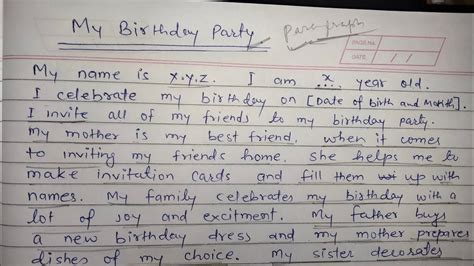 My Birthday Party
Paragraph
PAGE NO.
DATE / /
My name is x.y.z. I am x year old.
I celebrate my birthday on [Date of birth and Month].
I invite all of my friends to my birthday party.
my mother is my best friend, when it comes
to inviting my friends home. She helps me to
make invitation cards and fill them up with
names. My family celebrates my birthday with a
lot of joy and excitment. My father buys
a new birthday dress and my mother prepares
dishes of my choice. My sister decorates